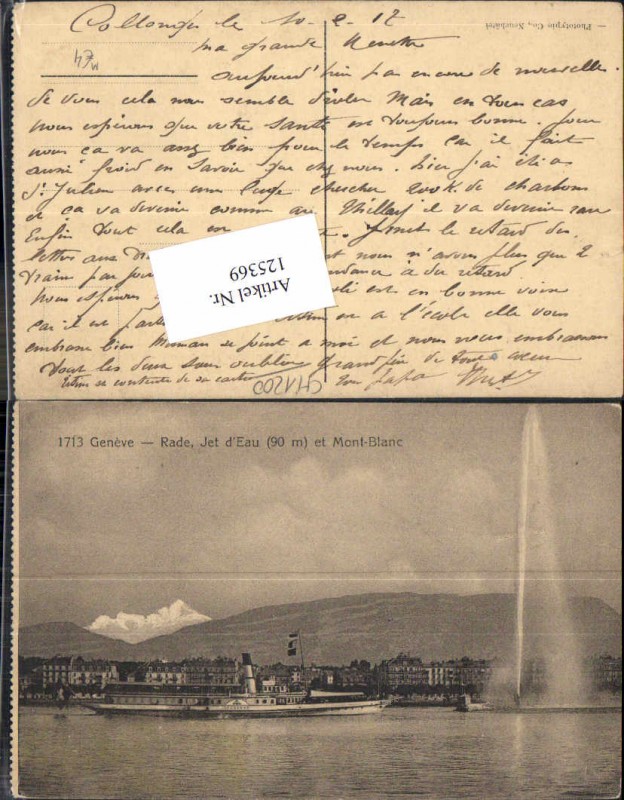 Collonges le 10-2-17
— Phototypie Co., Neuchâtel
ma grande Nenette
M€4
aujourd'hui pas encore de nouvelles.
de vous cela nous semble drôle. Mais en tous cas
nous espérons que votre santé est toujours bonne. Pour
nous ça va assez bien pour le temps car il fait
aussi froid en Savoie que chez nous. hier j'ai été a
St Julien avec une luge chercher 200 K. de charbons
et ça va devenir comme au il va devenir rare
Enfin tout cela en le retard des
lettres aux nous n'avons plus que 2
train par jour a du retard
nous espérons est en bonne voie
car il est a l'école elle vous
embrasse bien Maman se joint a moi et nous vous embrassons
tout les deux sans oublier grand de tout cœur
se contente de sa carte
CH1200
ton Papa
Artikel Nr.
125369
1713 Genève — Rade, Jet d'Eau (90 m) et Mont-Blanc